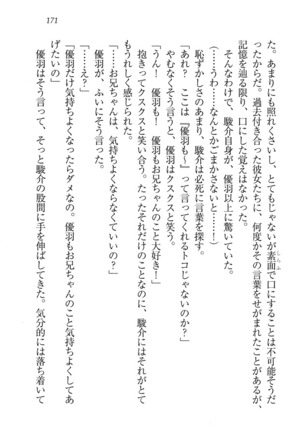 171
た。あまりにも照れくさいし、とてもじゃないが素面で口にすることは不可能そうだ
ったからだ。過去付き合った彼女たちに、何度かその言葉をせがまれたことがあるが、
記憶を辿る限り、口にした覚えはなかった。
そんなわけで、駿介自身が、優羽以上に驚いていた。
(……うわ……なんとかごまかさないと……っ)
恥ずかしさのあまり、駿介は必死に言葉を探す。
「あれ？　ここは『優羽も〜』って言ってくれるトコじゃないのか？」
やむなくそう言うと、優羽はクスクスと笑う。
「うん！　優羽も！　優羽もお兄ちゃんのこと大好き！」
抱きってクスクスと笑い合う。たったそれだけのことなのに、駿介にはそれがとて
もうれしく感じられた。
「……お兄ちゃんは、気持ちよくならなくていいの？」
優羽が、ふいにそう言う。
「……え？」
「優羽だけ気持ちよくなったらダメなの。優羽もお兄ちゃんのこと気持ちよくしてあ
げたいの」
優羽はそう言って、そっと駿介の股間に手を伸ばしてきた。気分的には落ち着いて